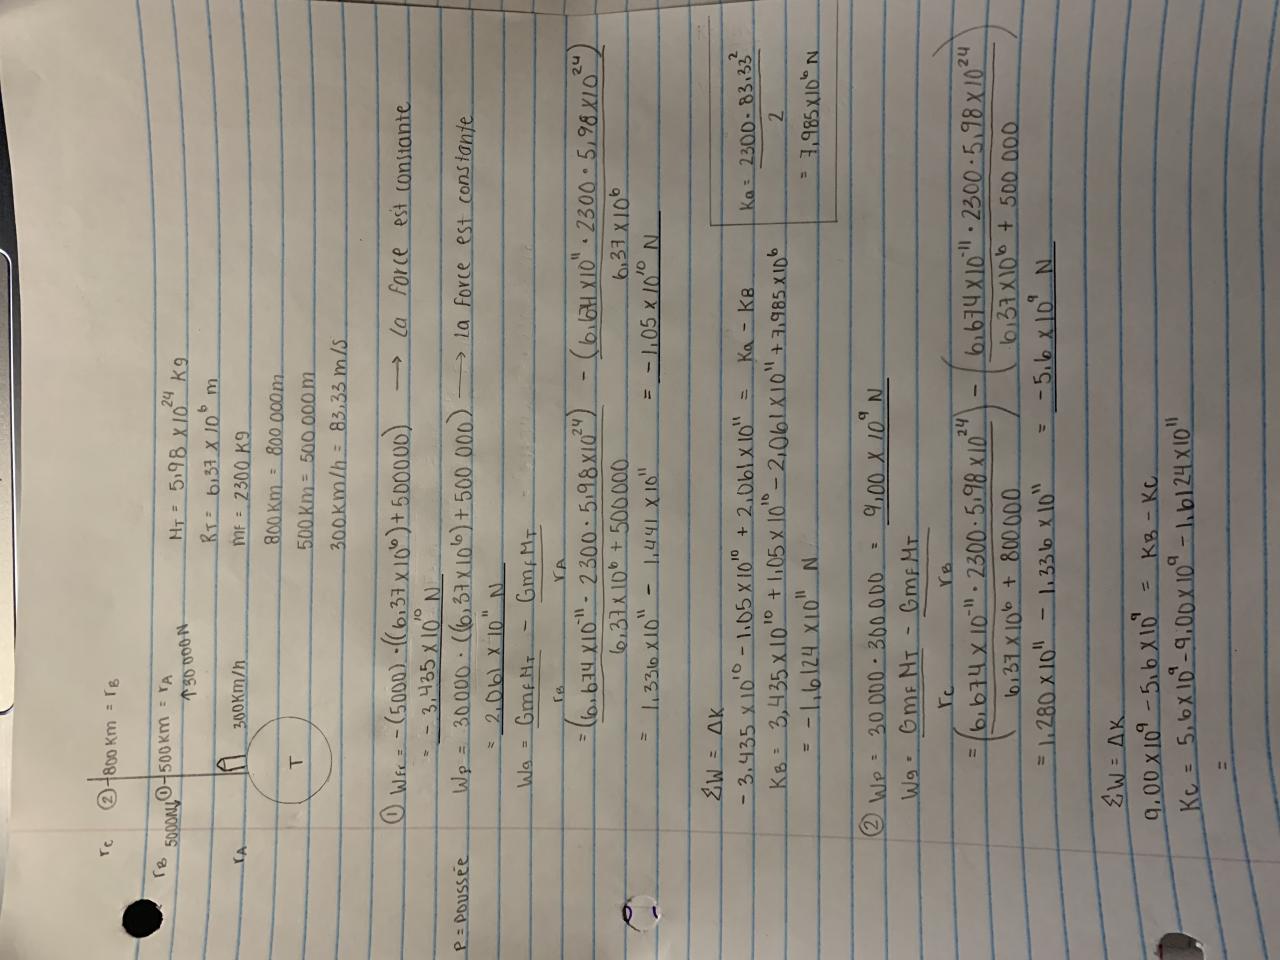 rc ② 800 km = rB
rB 5000N ↓ ① 500 km = rA
↑30 000N
rA 300km/h
T
MT = 5,98 x 10^24 kg
RT = 6,37 x 10^6 m
mF = 2300 kg
800 km = 800 000m
500 km = 500 000m
300 km/h = 83,33 m/s
① WFr = -(5000) · ((6,37 x 10^6) + 500000) → La force est constante
= - 3,435 x 10^10 N
P = poussée Wp = 30000 · ((6,37 x 10^6) + 500 000) → la force est constante
= 2,061 x 10^11 N
Wg = GmFMT/rB - GmFMT/rA
= (6,674 x 10^-11 · 2300 · 5,98 x 10^24)/(6,37 x 10^6 + 500000) - (6,674 x 10^11 · 2300 · 5,98 x 10^24)/(6,37 x 10^6)
= 1,336 x 10^11 - 1,441 x 10^11 = - 1,05 x 10^10 N
ΣW = ΔK
- 3,435 x 10^10 - 1,05 x 10^10 + 2,061 x 10^11 = Ka - KB
KB = 3,435 x 10^10 + 1,05 x 10^10 - 2,061 x 10^11 + 7,985 x 10^6
= -1,6124 x 10^11 N
Ka = 2300 · 83,33^2/2
= 7,985 x 10^6 N
② Wp = 30000 · 300 000 = 9,00 x 10^9 N
Wg = GmFMT/rc - GmFMT/rB
= (6,674 x 10^-11 · 2300 · 5,98 x 10^24/6,37 x 10^6 + 800000) - (6,674 x 10^-11 · 2300 · 5,98 x 10^24/6,37 x 10^6 + 500 000)
= 1,280 x 10^11 - 1,336 x 10^11 = - 5,6 x 10^9 N
ΣW = ΔK
9,00 x 10^9 - 5,6 x 10^9 = KB - KC
KC = 5,6 x 10^9 - 9,00 x 10^9 - 1,6124 x 10^11
=